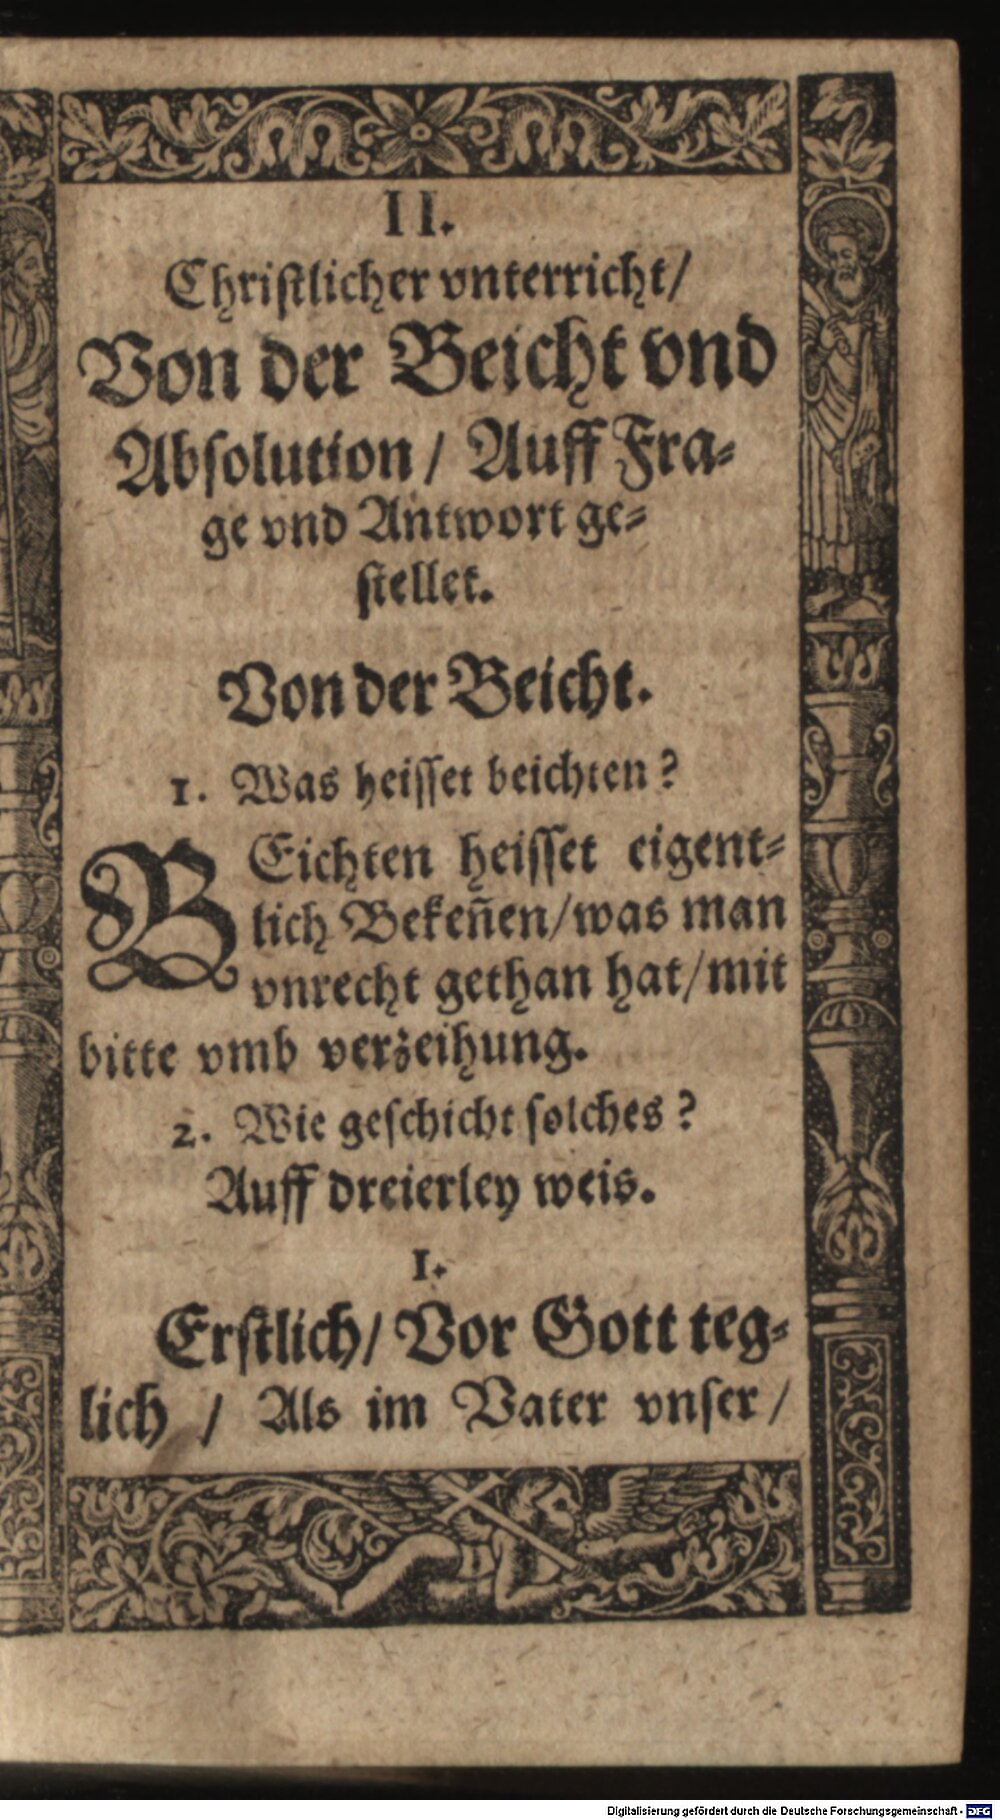 II.
Christlicher vnterricht/
Von der Beicht vnd
Absolution / Auff Fra-
ge vnd Antwort ge-
stellet.
Von der Beicht.
1. Was heisset beichten?
BEichten heisset eigent-
lich Bekeñen/was man
vnrecht gethan hat/mit
bitte vmb verzeihung.
2. Wie geschicht solches?
Auff dreierley weis.
I.
Erstlich/ Vor Gott teg-
lich / Als im Vater vnser/
Digitalisierung gefördert durch die Deutsche Forschungsgemeinschaft - DFG